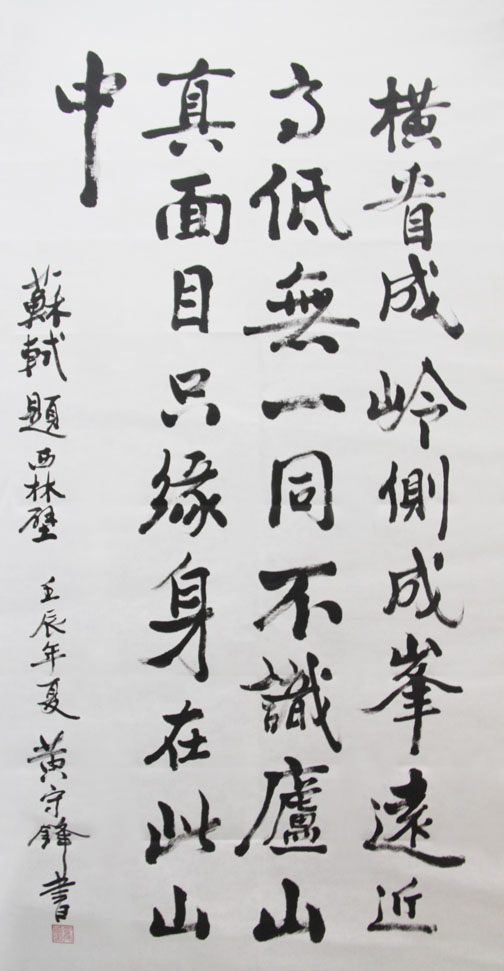 横看成岭側成峯遠近
高低無一同不識廬山
真面目只緣身在此山
中
蘇軾題西林壁 壬辰年夏 黄守鋒書